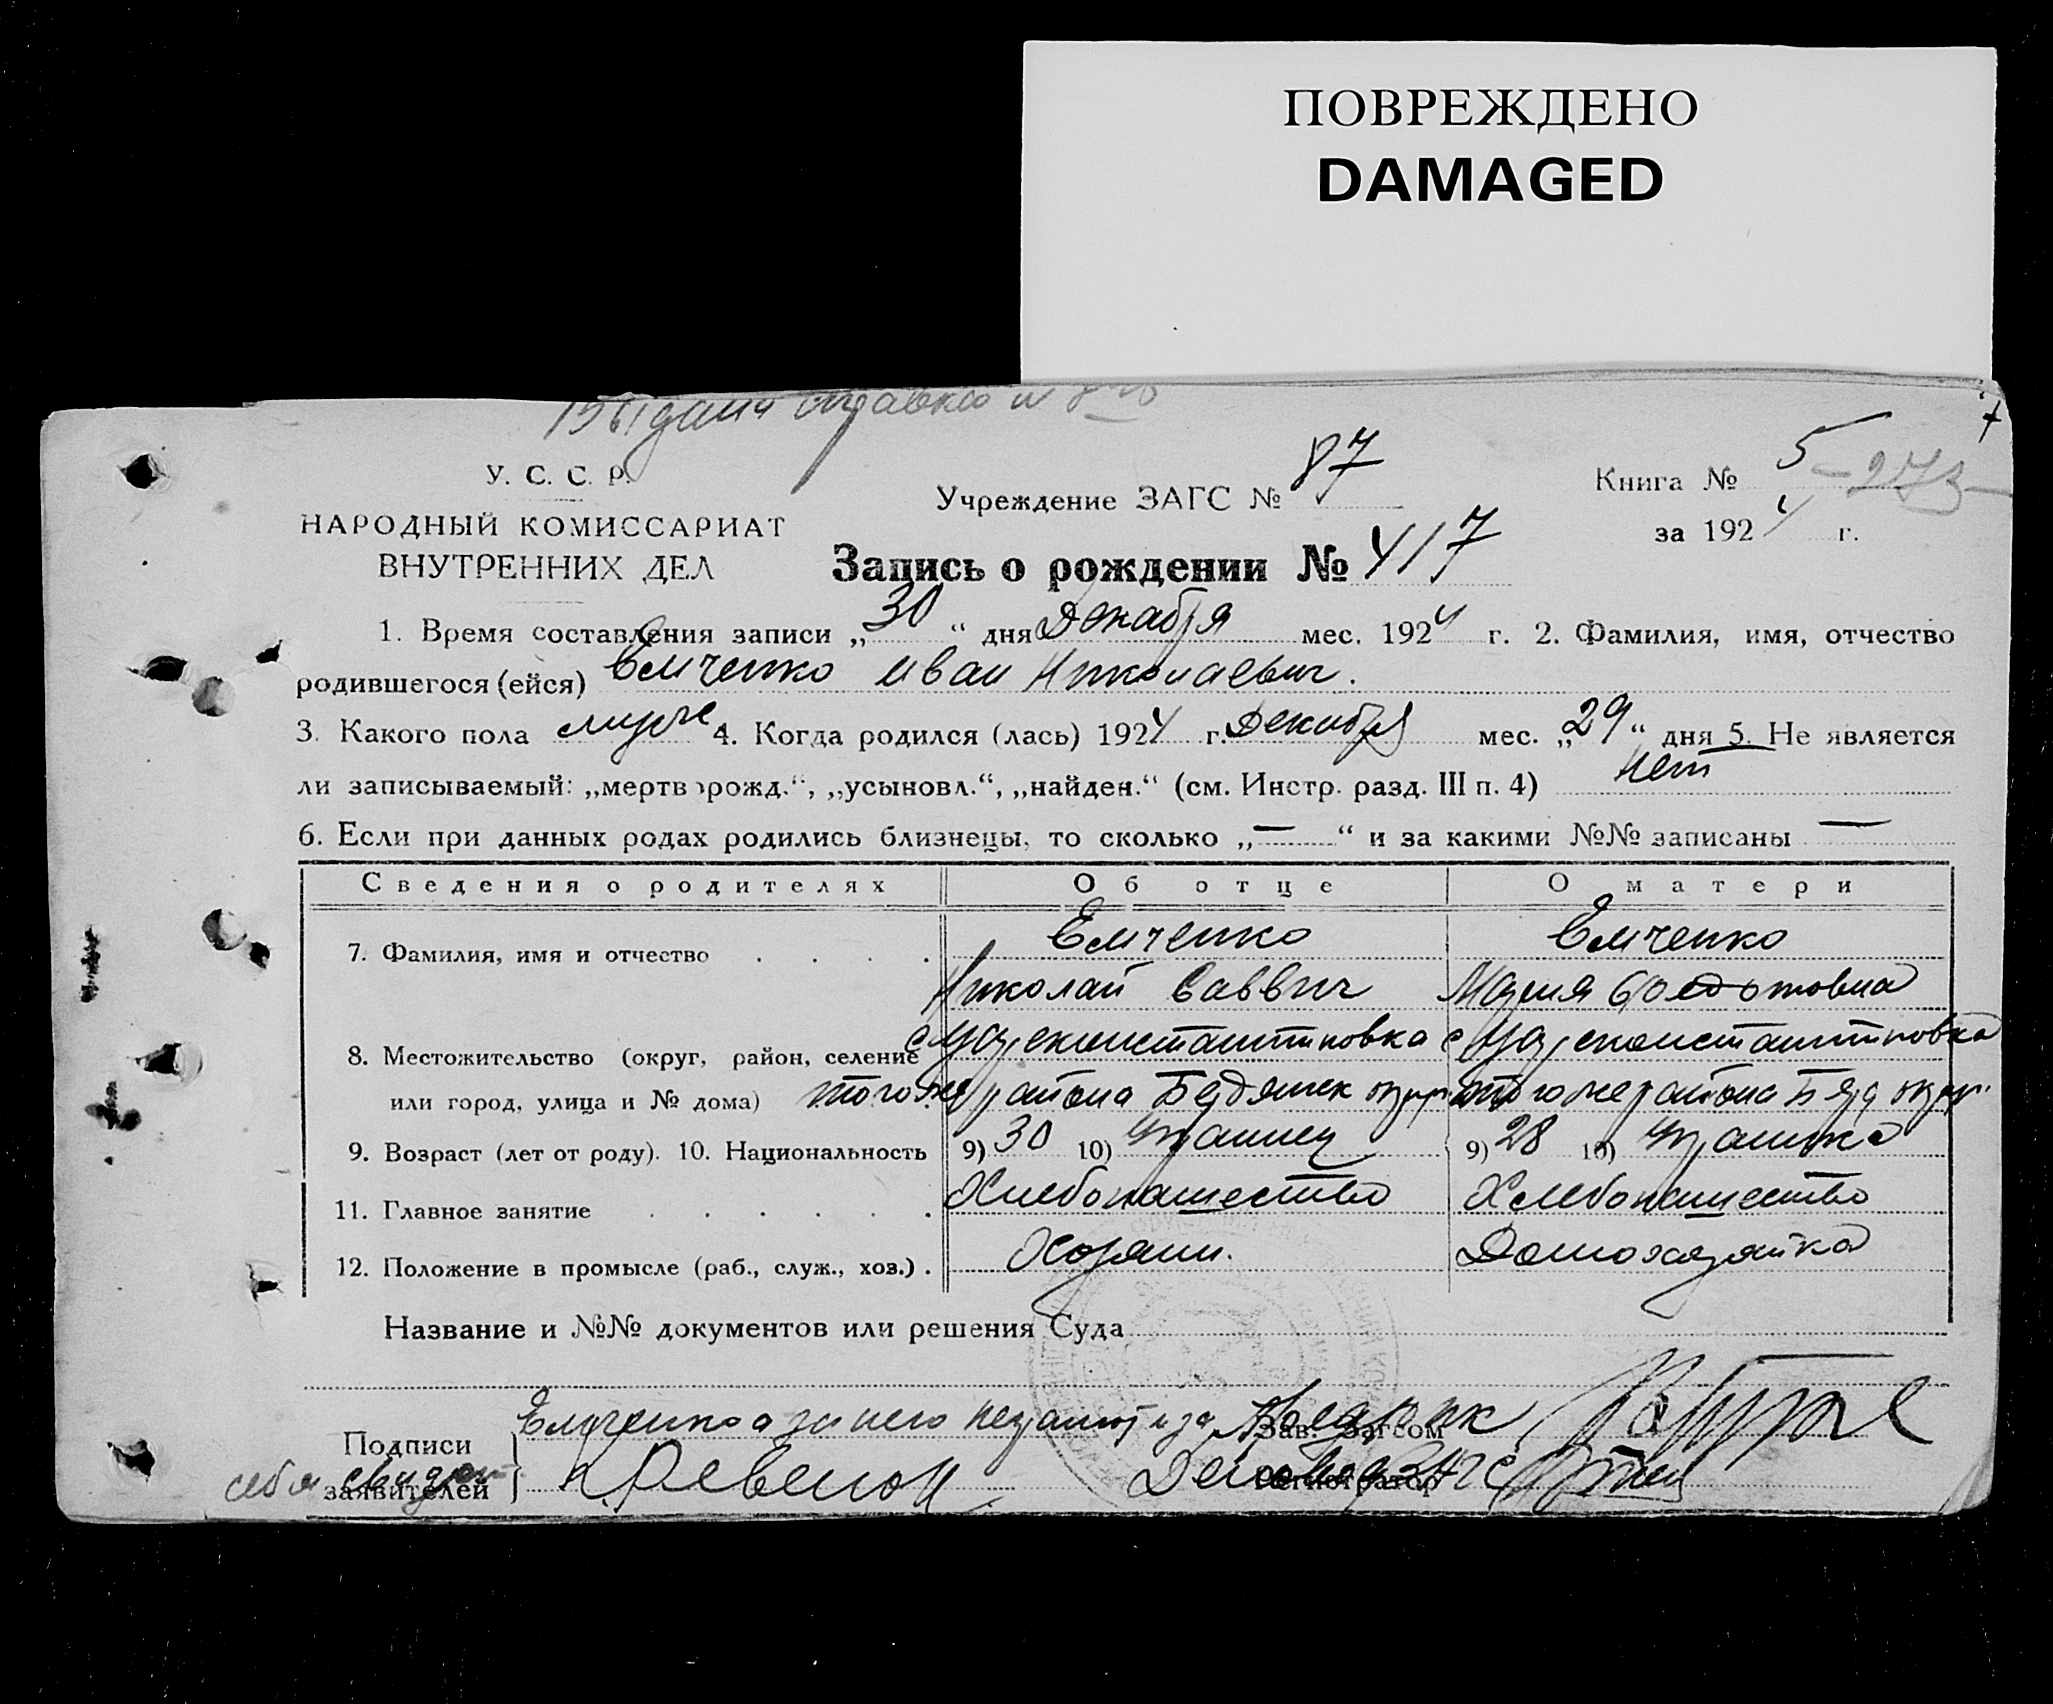 ПОВРЕЖДЕНО
DAMAGED
Выдана справка
У. С. С. Р.
НАРОДНЫЙ КОМИССАРИАТ
ВНУТРЕННИХ ДЕЛ
Учреждение ЗАГС № 87
Книга № 5 - 273
за 1924 г.
Запись о рождении № 417
1. Время составления записи „30“ дня Декабря мес. 1924 г. 2. Фамилия, имя, отчество
родившегося (ейся) Емченко Иван Николаевич.
3. Какого пола мужс. 4. Когда родился (лась) 1924 г. Декабря мес. „29“ дня 5. Не является
ли записываемый: „мертворожд.“, „усыновл.“, „найден.“ (см. Инстр. разд. III п. 4) нет
6. Если при данных родах родились близнецы, то сколько „—“ и за какими №№ записаны —
Сведения о родителях Об отце О матери
7. Фамилия, имя и отчество Емченко Емченко
Николай Саввич Мария Федотовна
8. Местожительство (округ, район, селение с Цареконстантиновка с Цареконстантиновка
или город, улица и № дома) того же района Бердянск окр. того же района Берд окр.
9. Возраст (лет от роду). 10. Национальность 9) 30 10) Украинец 9) 28 10) Украинка
11. Главное занятие Хлебопашество Хлебопашество
12. Положение в промысле (раб., служ., хоз.) Хозяин. Домохозяйка
Название и №№ документов или решения Суда
Емченко а за него неграмот и за
Подписи
Зав. Загсом
себя свидет
заявителей
К Ревенок
Регистратор